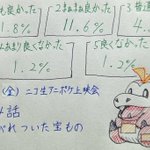 も良かった
2 まぁまぁ良かった
3 普通
.8%
11.6%
4.
あまり良くなかった
5 良くなかった
1.2%
1.2%
(金)ニコ生アニポケ上映会
話
れついた宝もの